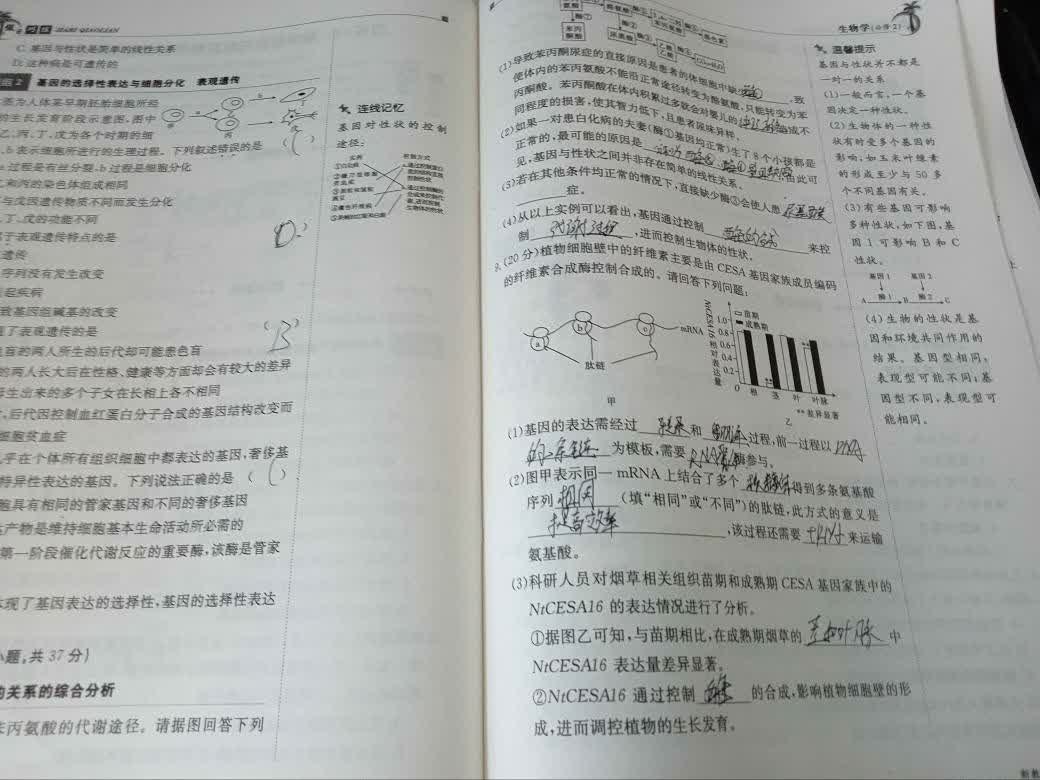 C. 基因与性状是简单的线性关系
D. 这种病是可遗传的
基因的选择性表达与细胞分化 表观遗传
图为人体某早期胚胎细胞所经
的生长发育阶段示意图,图中
乙、丙、丁、戊为各个时期的细
、b表示细胞所进行的生理过程。下列叙述错误的是
a过程是有丝分裂,b过程是细胞分化
乙和丙的染色体组成相同
与戊因遗传物质不同而发生分化
丁、戊的功能不同
属于表观遗传特点的是
遗传
序列没有发生改变
起疾病
致基因组碱基的改变
现了表观遗传的是
( B )
色盲的两人所生的后代却可能患色盲
的两人长大后在性格、健康等方面却会有较大的差异
母生出来的多个子女在长相上各不相同
,后代因控制血红蛋白分子合成的基因结构改变而
细胞贫血症
乎在个体所有组织细胞中都表达的基因,奢侈基
特异性表达的基因。下列说法正确的是
胞具有相同的管家基因和不同的奢侈基因
达产物是维持细胞基本生命活动所必需的
第一阶段催化代谢反应的重要酶,该酶是管家
体现了基因表达的选择性,基因的选择性表达
小题,共 37 分)
的关系的综合分析
苯丙氨酸的代谢途径。请据图回答下列
连线记忆
基因对性状的控制
途径:
实例
控制方式
生物学(必修2)
(1)导致苯丙酮尿症的直接原因是患者的体细胞中缺少 ,致
使体内的苯丙氨酸不能沿正常途径转变为酪氨酸,只能转变为苯
丙酮酸。苯丙酮酸在体内积累过多就会对婴儿的 造成不
同程度的损害,使其智力低下,且患者尿味异样。
(2)如果一对患白化病的夫妻(酶①基因均正常)生了8个小孩都是
正常的,最可能的原因是 ,由此可
见,基因与性状之间并非存在简单的线性关系。
(3)若在其他条件均正常的情况下,直接缺少酶③会使人患
症。
(4)从以上实例可以看出,基因通过控制 来控
制 代谢过程 ,进而控制生物体的性状。
9.(20分)植物细胞壁中的纤维素主要是由CESA基因家族成员编码
的纤维素合成酶控制合成的。请回答下列问题:
a
b
c
mRNA
肽链
甲
NtCESA16相对表达量
苗期
成熟期
1.0
0.8
0.6
0.4
0.2
0
根 茎 叶 叶脉
**差异显著
乙
(1)基因的表达需经过 转录 和 翻译 过程,前一过程以 DNA
的一条链 为模板,需要 RNA聚合酶参与。
(2)图甲表示同一mRNA上结合了多个 核糖体 得到多条氨基酸
序列 相同 (填“相同”或“不同”)的肽链,此方式的意义是
提高效率 ,该过程还需要 tRNA 来运输
氨基酸。
(3)科研人员对烟草相关组织苗期和成熟期CESA基因家族中的
NtCESA16的表达情况进行了分析。
①据图乙可知,与苗期相比,在成熟期烟草的 茎和叶脉 中
NtCESA16表达量差异显著。
②NtCESA16通过控制 的合成,影响植物细胞壁的形
成,进而调控植物的生长发育。
温馨提示
基因与性状并不都是
一对一的关系
(1)一般而言,一个基
因决定一种性状。
(2)生物体的一种性
状有时受多个基因的
影响,如玉米叶绿素
的形成至少与50多
个不同基因有关。
(3)有些基因可影响
多种性状,如下图,基
因1可影响B和C
性状。
基因1 基因2
酶1 酶2
A B C
(4)生物的性状是基
因和环境共同作用的
结果。基因型相同,
表现型可能不同;基
因型不同,表现型可
能相同。